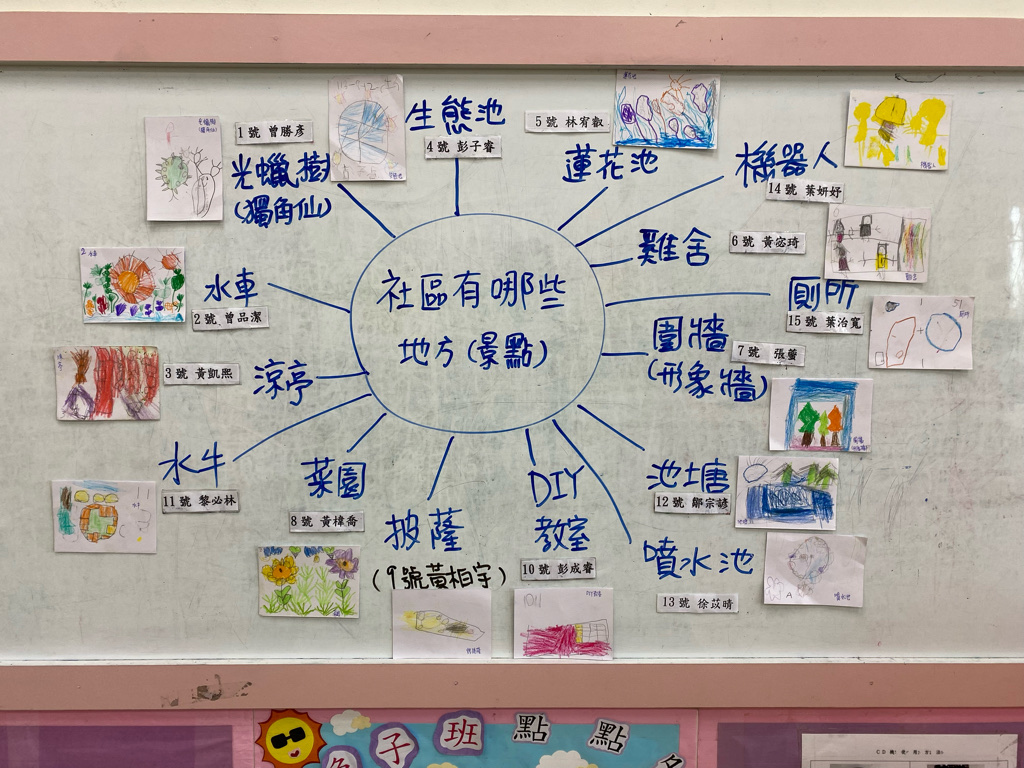 社區有哪些
地方(景點)
生態池
4號 彭子睿
5號 林宥叡
蓮花池
機器人
14號 葉妍妤
雞舍
6號 黃宓琦
廁所
15號 葉治寬
圍牆
(形象牆)
7號 張蘊
池塘
12號 鄒宗諺
噴水池
13號 徐苡晴
DIY
教室
10號 彭成睿
披薩
(9號黃柏宇)
菜園
8號 黃橦喬
水牛
11號 黎必林
涼亭
3號 黃凱熙
水車
2號 曾品潔
1號 曾勝彥
光蠟樹
(獨角仙)
子班 點 點